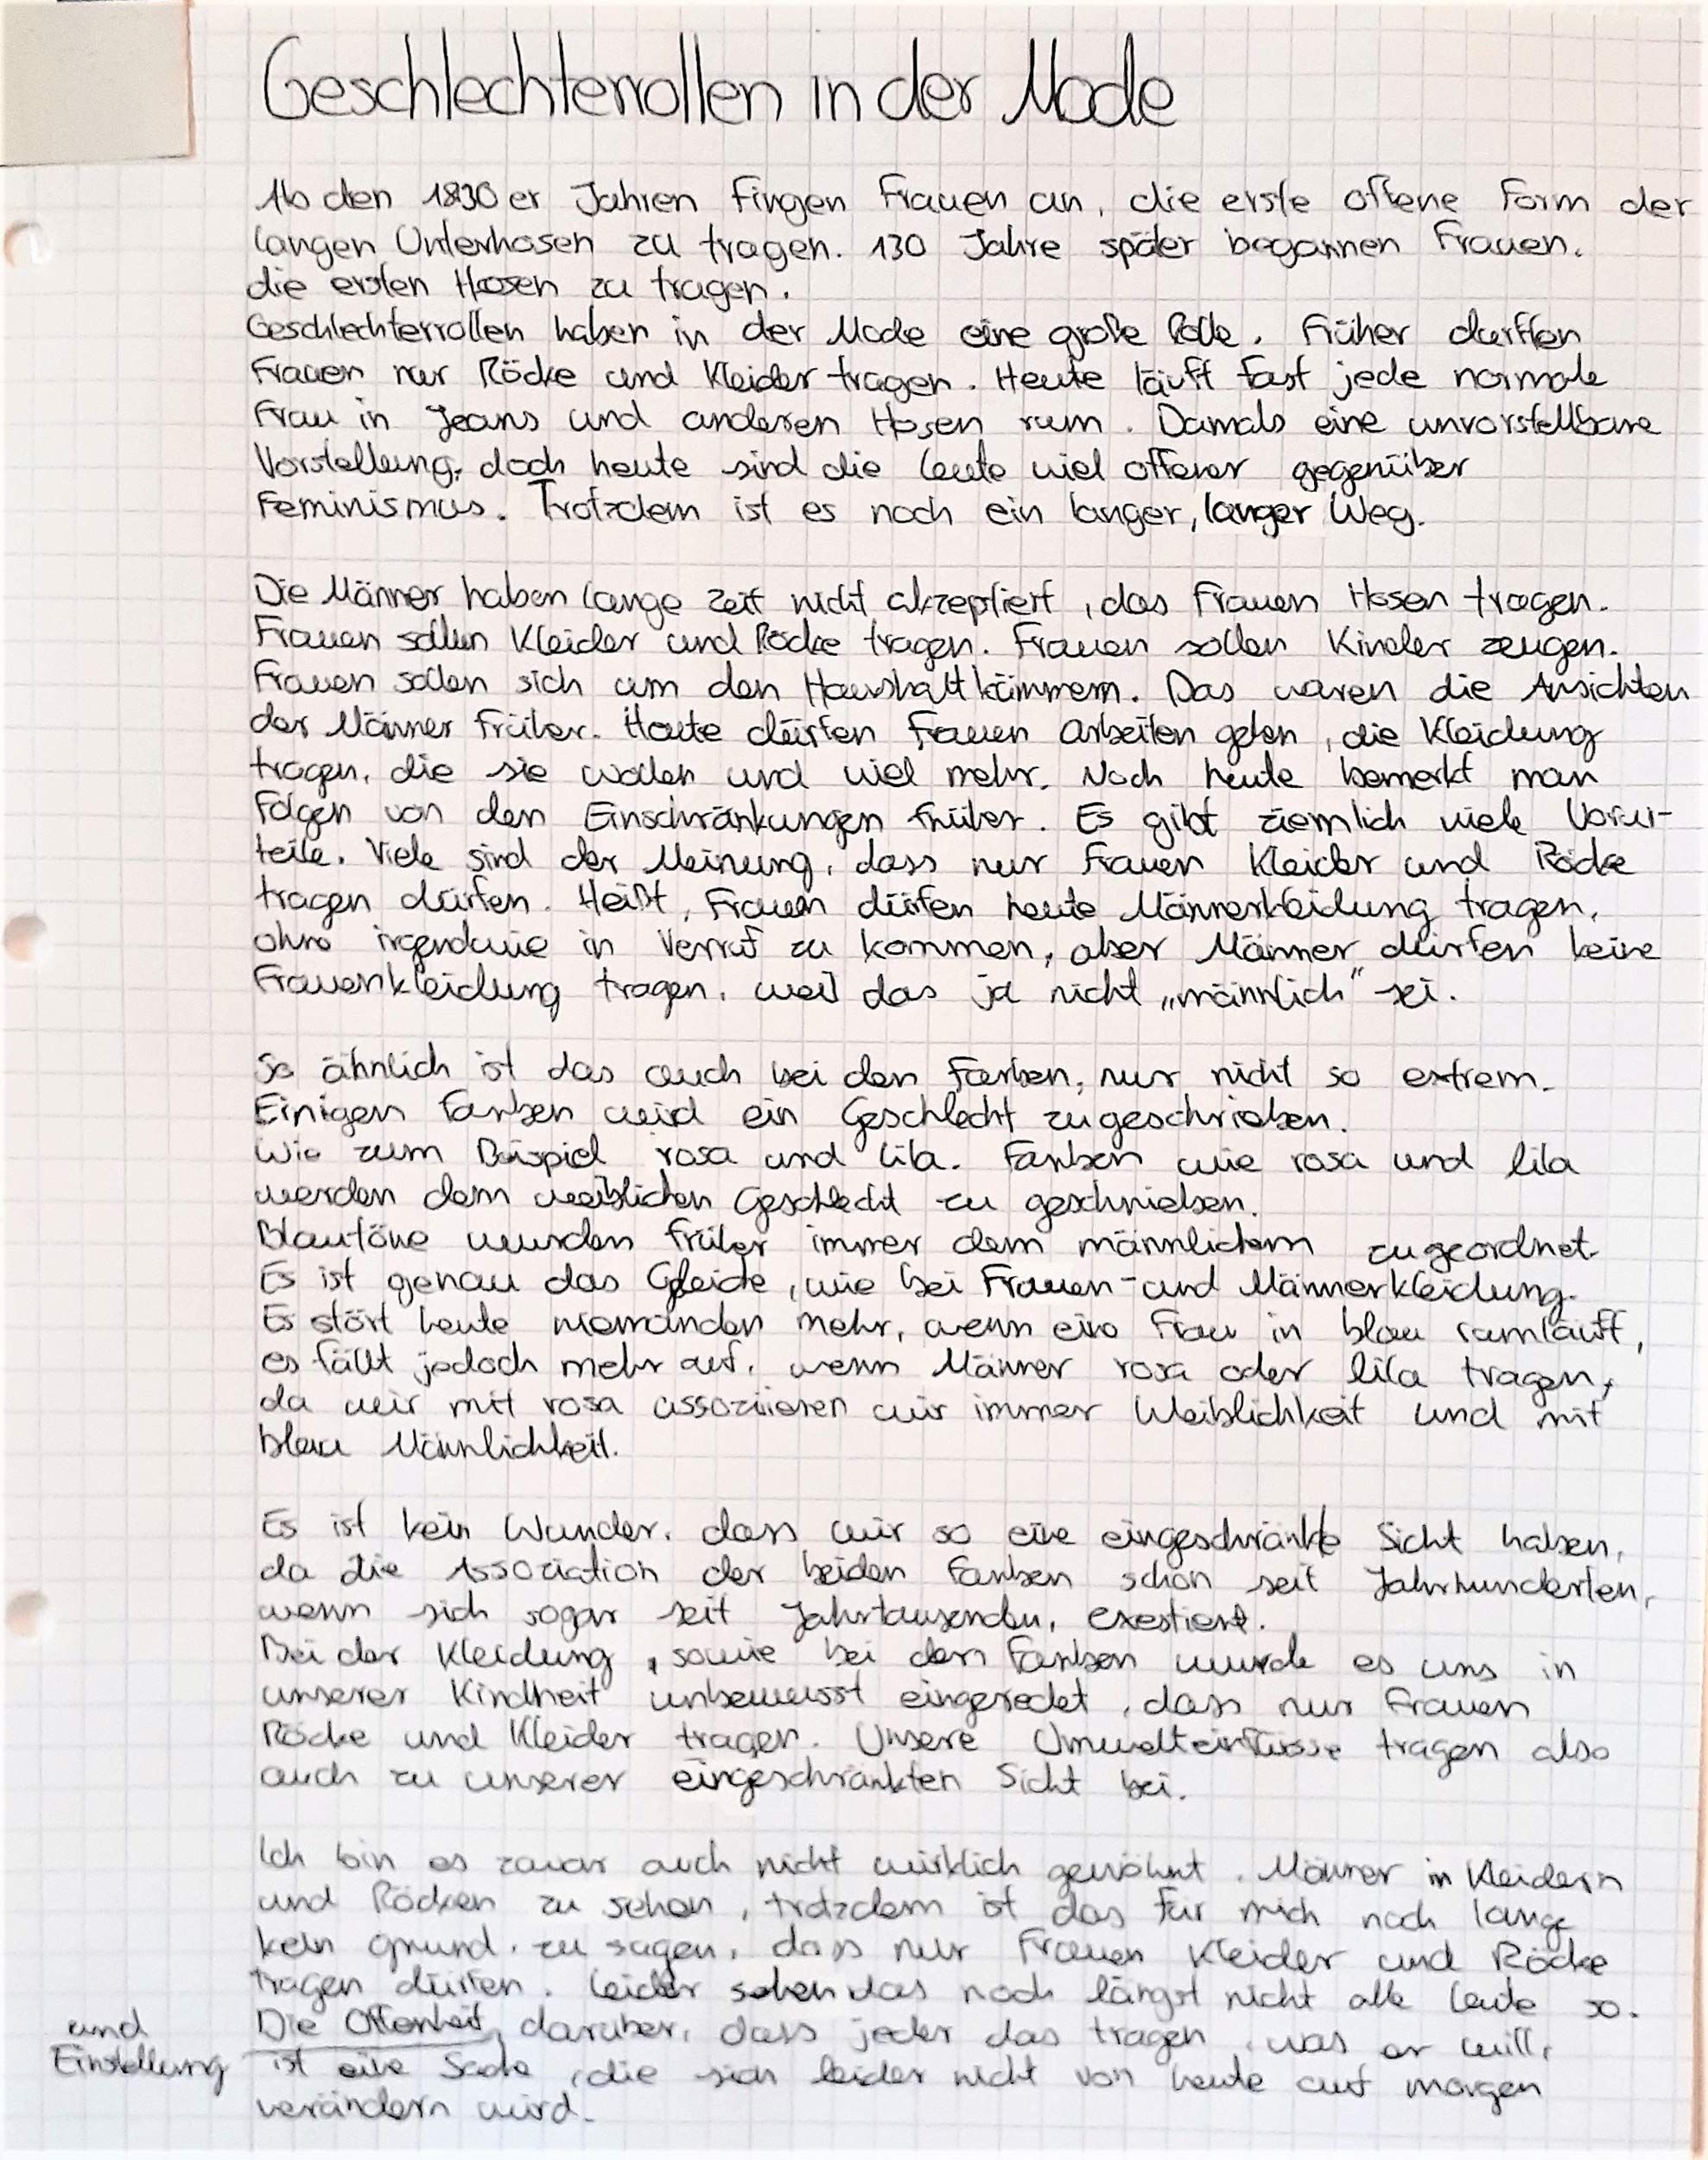 Geschlechterrollen in der Mode
Ab den 1830er Jahren fingen Frauen an, die erste offene Form der
langen Unterhosen zu tragen. 130 Jahre später begannen Frauen,
die ersten Hosen zu tragen.
Geschlechterrollen haben in der Mode eine große Rolle. Früher durften
Frauen nur Röcke und Kleider tragen. Heute läuft fast jede normale
Frau in Jeans und anderen Hosen rum. Damals eine unvorstellbare
Vorstellung, doch heute sind die Leute viel offener gegenüber
Feminismus. Trotzdem ist es noch ein langer, langer Weg.
Die Männer haben lange Zeit nicht akzeptiert, das Frauen Hosen tragen.
Frauen sollen Kleider und Röcke tragen. Frauen sollen Kinder zeugen.
Frauen sollen sich um den Haushalt kümmern. Das waren die Ansichten
der Männer früher. Heute dürfen Frauen arbeiten gehen, die Kleidung
tragen, die sie wollen und viel mehr. Noch heute bemerkt man
Folgen von den Einschränkungen früher. Es gibt ziemlich viele Vorur-
teile. Viele sind der Meinung, dass nur Frauen Kleider und Röcke
tragen dürfen. Heißt, Frauen dürfen heute Männerkleidung tragen,
ohne irgendwie in Verruf zu kommen, aber Männer dürfen keine
Frauenkleidung tragen, weil das ja nicht „männlich" sei.
So ähnlich ist das auch bei den Farben, nur nicht so extrem.
Einigen Farben wird ein Geschlecht zugeschrieben.
Wie zum Beispiel rosa und lila. Farben wie rosa und lila
werden dem weiblichen Geschlecht zu geschrieben.
Blautöne wurden früher immer dem männlichem zugeordnet.
Es ist genau das Gleiche, wie bei Frauen- und Männerkleidung.
Es stört heute niemanden mehr, wenn eine Frau in blau rumläuft,
es fällt jedoch mehr auf, wenn Männer rosa oder lila tragen,
da wir mit rosa assoziieren wir immer Weiblichkeit und mit
blau Männlichkeit.
Es ist kein Wunder, dass wir so eine eingeschränkte Sicht haben,
da die Assoziation der beiden Farben schon seit Jahrhunderten,
wenn sich sogar seit Jahrtausenden, exestiert.
Bei der Kleidung, sowie bei den Farben wurde es uns in
unserer Kindheit unbewusst eingeredet, dass nur Frauen
Röcke und Kleider tragen. Unsere Umwelteinflüsse tragen also
auch zu unserer eingeschränkten Sicht bei.
Ich bin es zwar auch nicht wirklich gewöhnt, Männer in Kleidern
und Röcken zu sehen, trotzdem ist das für mich noch lange
kein grund, zu sagen, dass nur Frauen Kleider und Röcke
tragen dürfen. Leider sehen das noch längst nicht alle Leute so.
und Einstellung
Die Offenheit darüber, dass jeder das tragen, was er will,
ist eine Sache, die sich leider nicht von heute auf morgen
verändern wird.